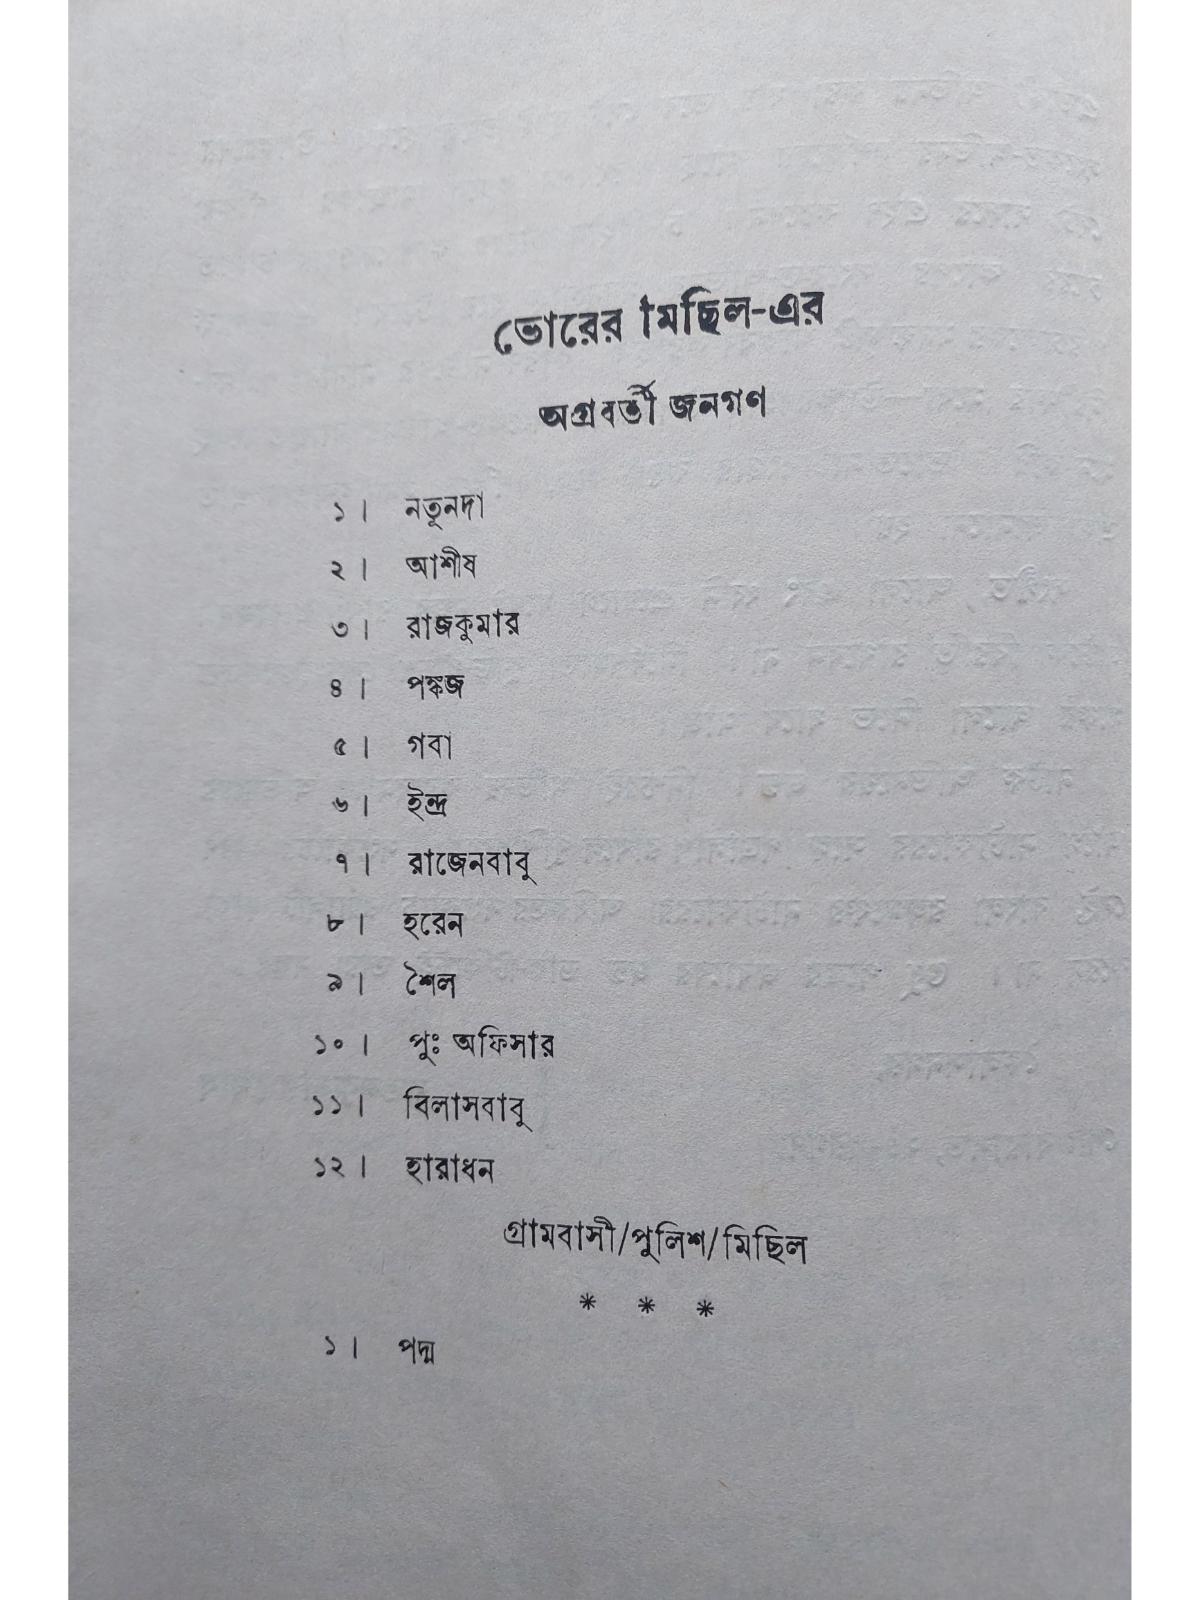 ভোরের মিছিল-এর
অগ্রবর্তী জনগণ
১। নতূনদা
২। আশীষ
৩। রাজকুমার
৪। পঙ্কজ
৫। গবা
৬। ইন্দ্র
৭। রাজেনবাবু
৮। হরেন
৯। শৈল
১০। পুঃ অফিসার
১১। বিলাসবাবু
১২। হারাধন
গ্রামবাসী/পুলিশ/মিছিল
* * *
১। পদ্ম